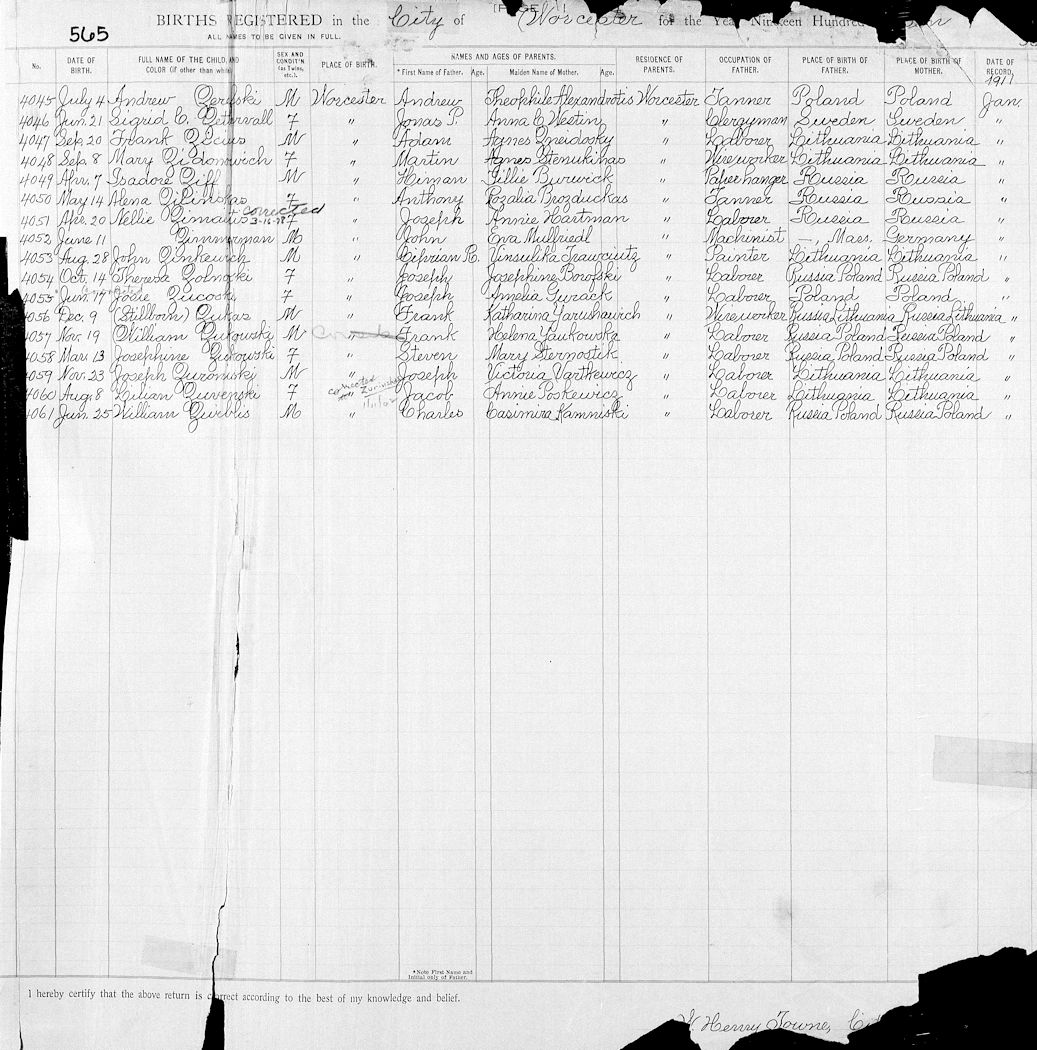 565
BIRTHS REGISTERED in the City of Worcester for the Year Nineteen Hundred
ALL NAMES TO BE GIVEN IN FULL.
No. DATE OF BIRTH. FULL NAME OF THE CHILD, AND COLOR (if other than white) SEX AND CONDIT'N (as Twins, etc.). PLACE OF BIRTH. NAMES AND AGES OF PARENTS. *First Name of Father. Age. Maiden Name of Mother. Age. RESIDENCE OF PARENTS. OCCUPATION OF FATHER. PLACE OF BIRTH OF FATHER. PLACE OF BIRTH OF MOTHER. DATE OF RECORD,
1911
4045 July 4 Andrew M Worcester Andrew Theophile Alexandrotis Worcester Tanner Poland Poland Jan.
4046 Jun. 21 Sigrid C. Zetervall F " Jonas P. Anna C Westin " Clergyman Sweden Sweden "
4047 Sep. 20 Frank M " Adam Agnes " Laborer Lithuania Lithuania "
4048 Sep. 8 Mary F " Martin Agnes Stenukinas " Wireworker Lithuania Lithuania "
4049 Apr. 7 Isadore Ziff M " Himan Tillie Burwick " Paper hanger Russia Russia "
4050 May 14 Alena Zilinskas F " Anthony Rozalia Brozduckas " Tanner Russia Russia "
4051 Apr. 20 Nellie corrected 3-16-78 F " Joseph Annie Hartman " Laborer Russia Russia "
4052 June 11 Zimmerman M " John Eva Mulfriedl " Machinist —, Mass. Germany "
4053 Aug. 28 John Zinkewich M " Ciprian R. " Painter Lithuania Lithuania "
4054 Oct. 14 Theresa Zolnoski F " Joseph Josephine Borofski " Laborer Russia Poland Russia Poland "
4055 Jun. 17 Josie F " Joseph Amelia Gurack " Laborer Poland Poland "
4056 Dec. 9 (Stillborn) Zukas M " Frank Katharina Yarushawich " Wireworker Russia Lithuania Russia Lithuania "
4057 Nov. 19 William Zukowski M Frank Helena Yaukowska " Laborer Russia Poland Russia Poland "
4058 Mar. 13 Josephine Zukowski F " Steven Mary Sternostik " Laborer Russia Poland Russia Poland "
4059 Nov. 23 Joseph M " Joseph Victoria Vartkewicz " Laborer Lithuania Lithuania "
corrected
4060 Aug. 8 Lilian F " Jacob Annie Poskewicz " Laborer Lithuania Lithuania "
4061 Jan. 25 William M " Charles Casimira Kamniski " Laborer Russia Poland Russia Poland "
*Note First Name and
Initial only of Father.
I hereby certify that the above return is correct according to the best of my knowledge and belief.
W Henry Towne,